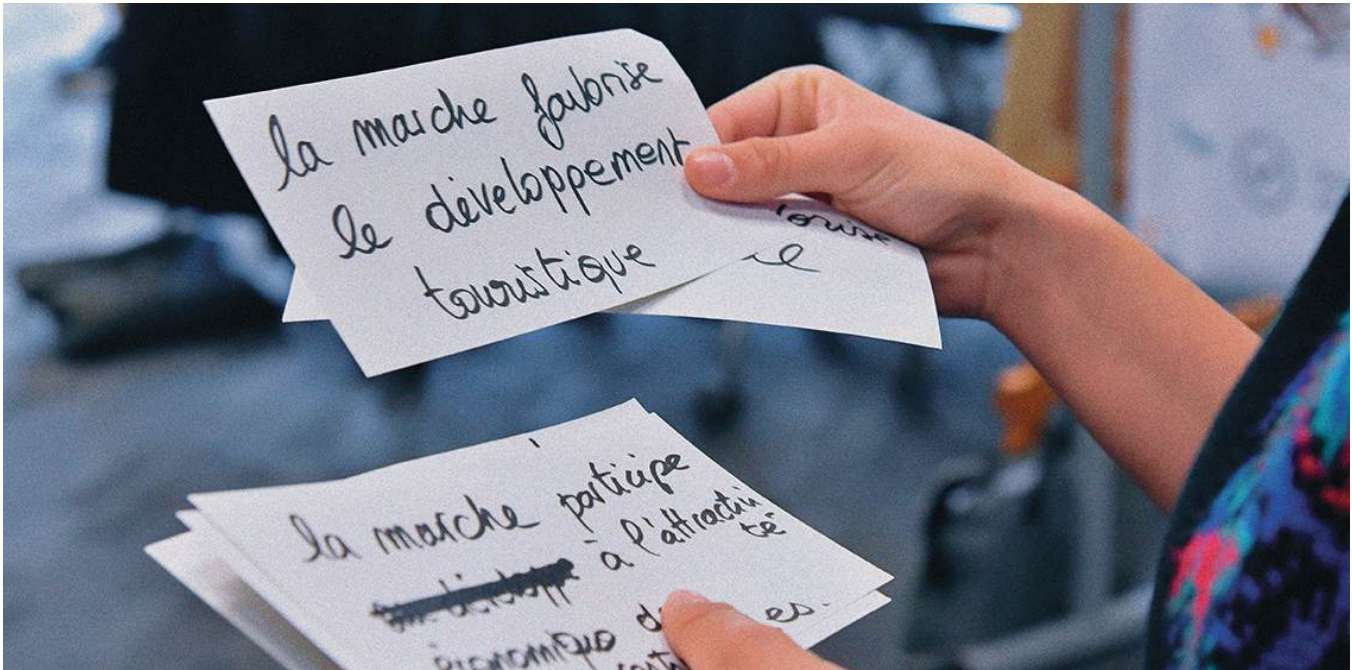 la marche favorise
le développement
touristique
la marche participe
à l'attractivi
té
économique